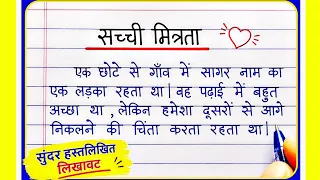 सच्ची मित्रता
एक छोटे से गाँव में सागर नाम का
एक लड़का रहता था। वह पढ़ाई में बहुत
अच्छा था, लेकिन हमेशा दूसरों से आगे
निकलने की चिंता करता रहता था।
सुंदर हस्तलिखित
लिखावट